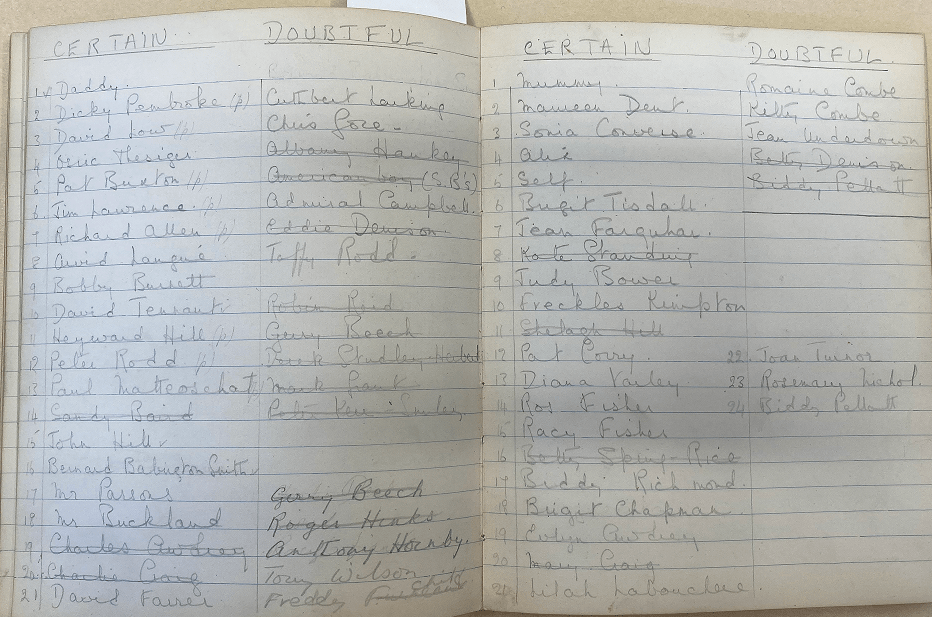 CERTAIN DOUBTFUL
1 Daddy.
2 Dicky Pembroke (p) Cuthbert Larking
3 David Low (p) Chris Gore -
4 Eric Thesiger Albany Hankey
5 Pat Buxton (p) American boy (S.B's)
6 Jim Lawrence. (p) Admiral Campbell.
7 Richard Allen (p) Eddie Denison.
8 Taffy Rodd.
9 Bobby Bussett
10 David Tennant Robin Reid
11 Heywood Hill (p) Gerry Beech
12 Peter Rodd (p)
13 Paul Mark
14 Sandy Baird Peter Kerr-Smiley
15 John Hill
16 Bernard Babington Smith
17 Mr Parsons Gerry Beech
18 Mr Buckland Roger Hinks
19 Charles Awdrey Anthony Hornby
20 Charlie Craig Tony Wilson
21 David Farrer Freddy
CERTAIN DOUBTFUL
1 Mummy. Romaine Combe
2 Maureen Dent. Kitty Combe
3 Sonia Converse. Jean Underdown
4 Alix Betty Denison
5 Self. Biddy Pellatt
6 Brigit Tisdall.
7 Jean Farquhar.
8 Kate Standing
9 Judy Bower
10 Freckles Kimpton
11 Shelagh Hill
12 Pat Corry. 22. Joan Turnor
13 Diana Varley 23 Rosemary Nichol.
14 Ros Fisher 24 Biddy Pellatt
15 Racy Fisher
16 Betty Spring-Rice
17 Biddy Richmond.
18 Brigit Chapman.
19 Evlyn Awdrey
20 Mary Craig
21 Lilah Labouchere.